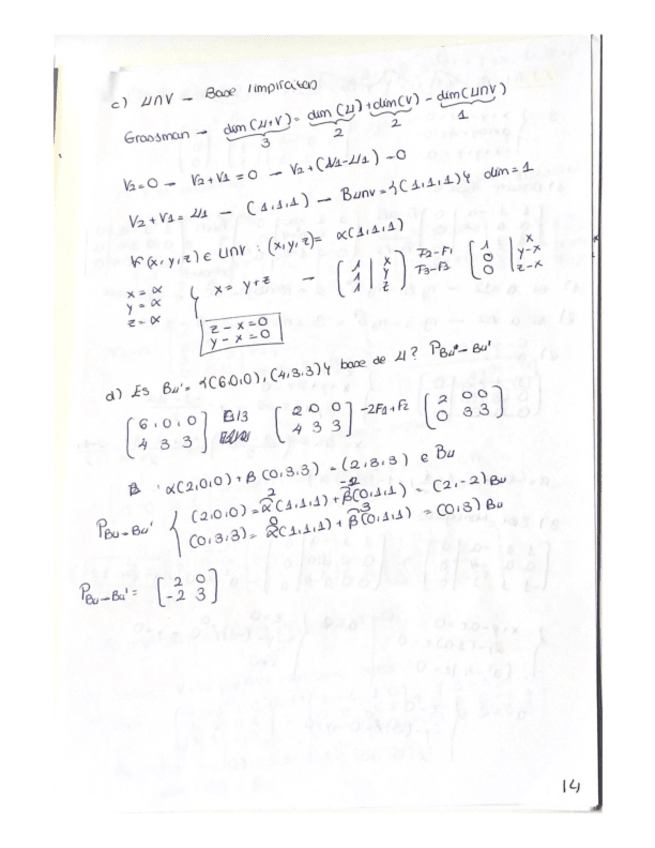 c) U∩V → Base Implícitas
Grassman → dim (U+V) = dim (U) + dim (V) - dim (U∩V)
3 2 2 1
V2=0 → V2+V1=0 → V2+(V1-U1)=0
V2+V1=U1 → (1,1,1) → BU∩V={(1,1,1)} dim=1
(x,y,z) ∈ U∩V : (x,y,z)= α(1,1,1)
x=α
y=α
z=α
x=y+z → [1 1 1 | x y z] F2-F1 F3-F2 [1 0 0 | x y-x z-x]
z-x=0
y-x=0
d) Es Bu'={(6,0,0),(4,3,3)} base de U? PBu*-Bu'
[6,0,0 4 3 3] [2 0 0 4 3 3] -2F1+F2 [2 0 0 0 3 3]
α(2,0,0)+β(0,3,3) = (2,3,3) ∈ Bu
2 -2
PBu-Bu' { (2,0,0) = α(1,1,1)+β(0,1,1) = (2,-2)Bu
0 3
(0,3,3) = α(1,1,1)+β(0,1,1) = (0,3)Bu
PBu-Bu' = [2 0 -2 3]
14